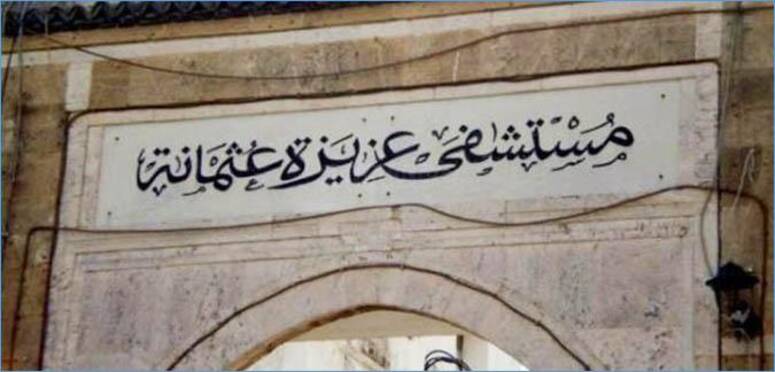 مُسْتشفى عزيزة عُثمَانة